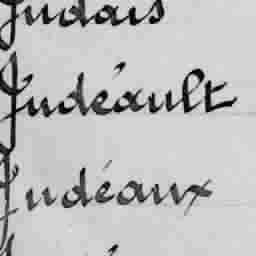 Judais
Judéault
Judéaux